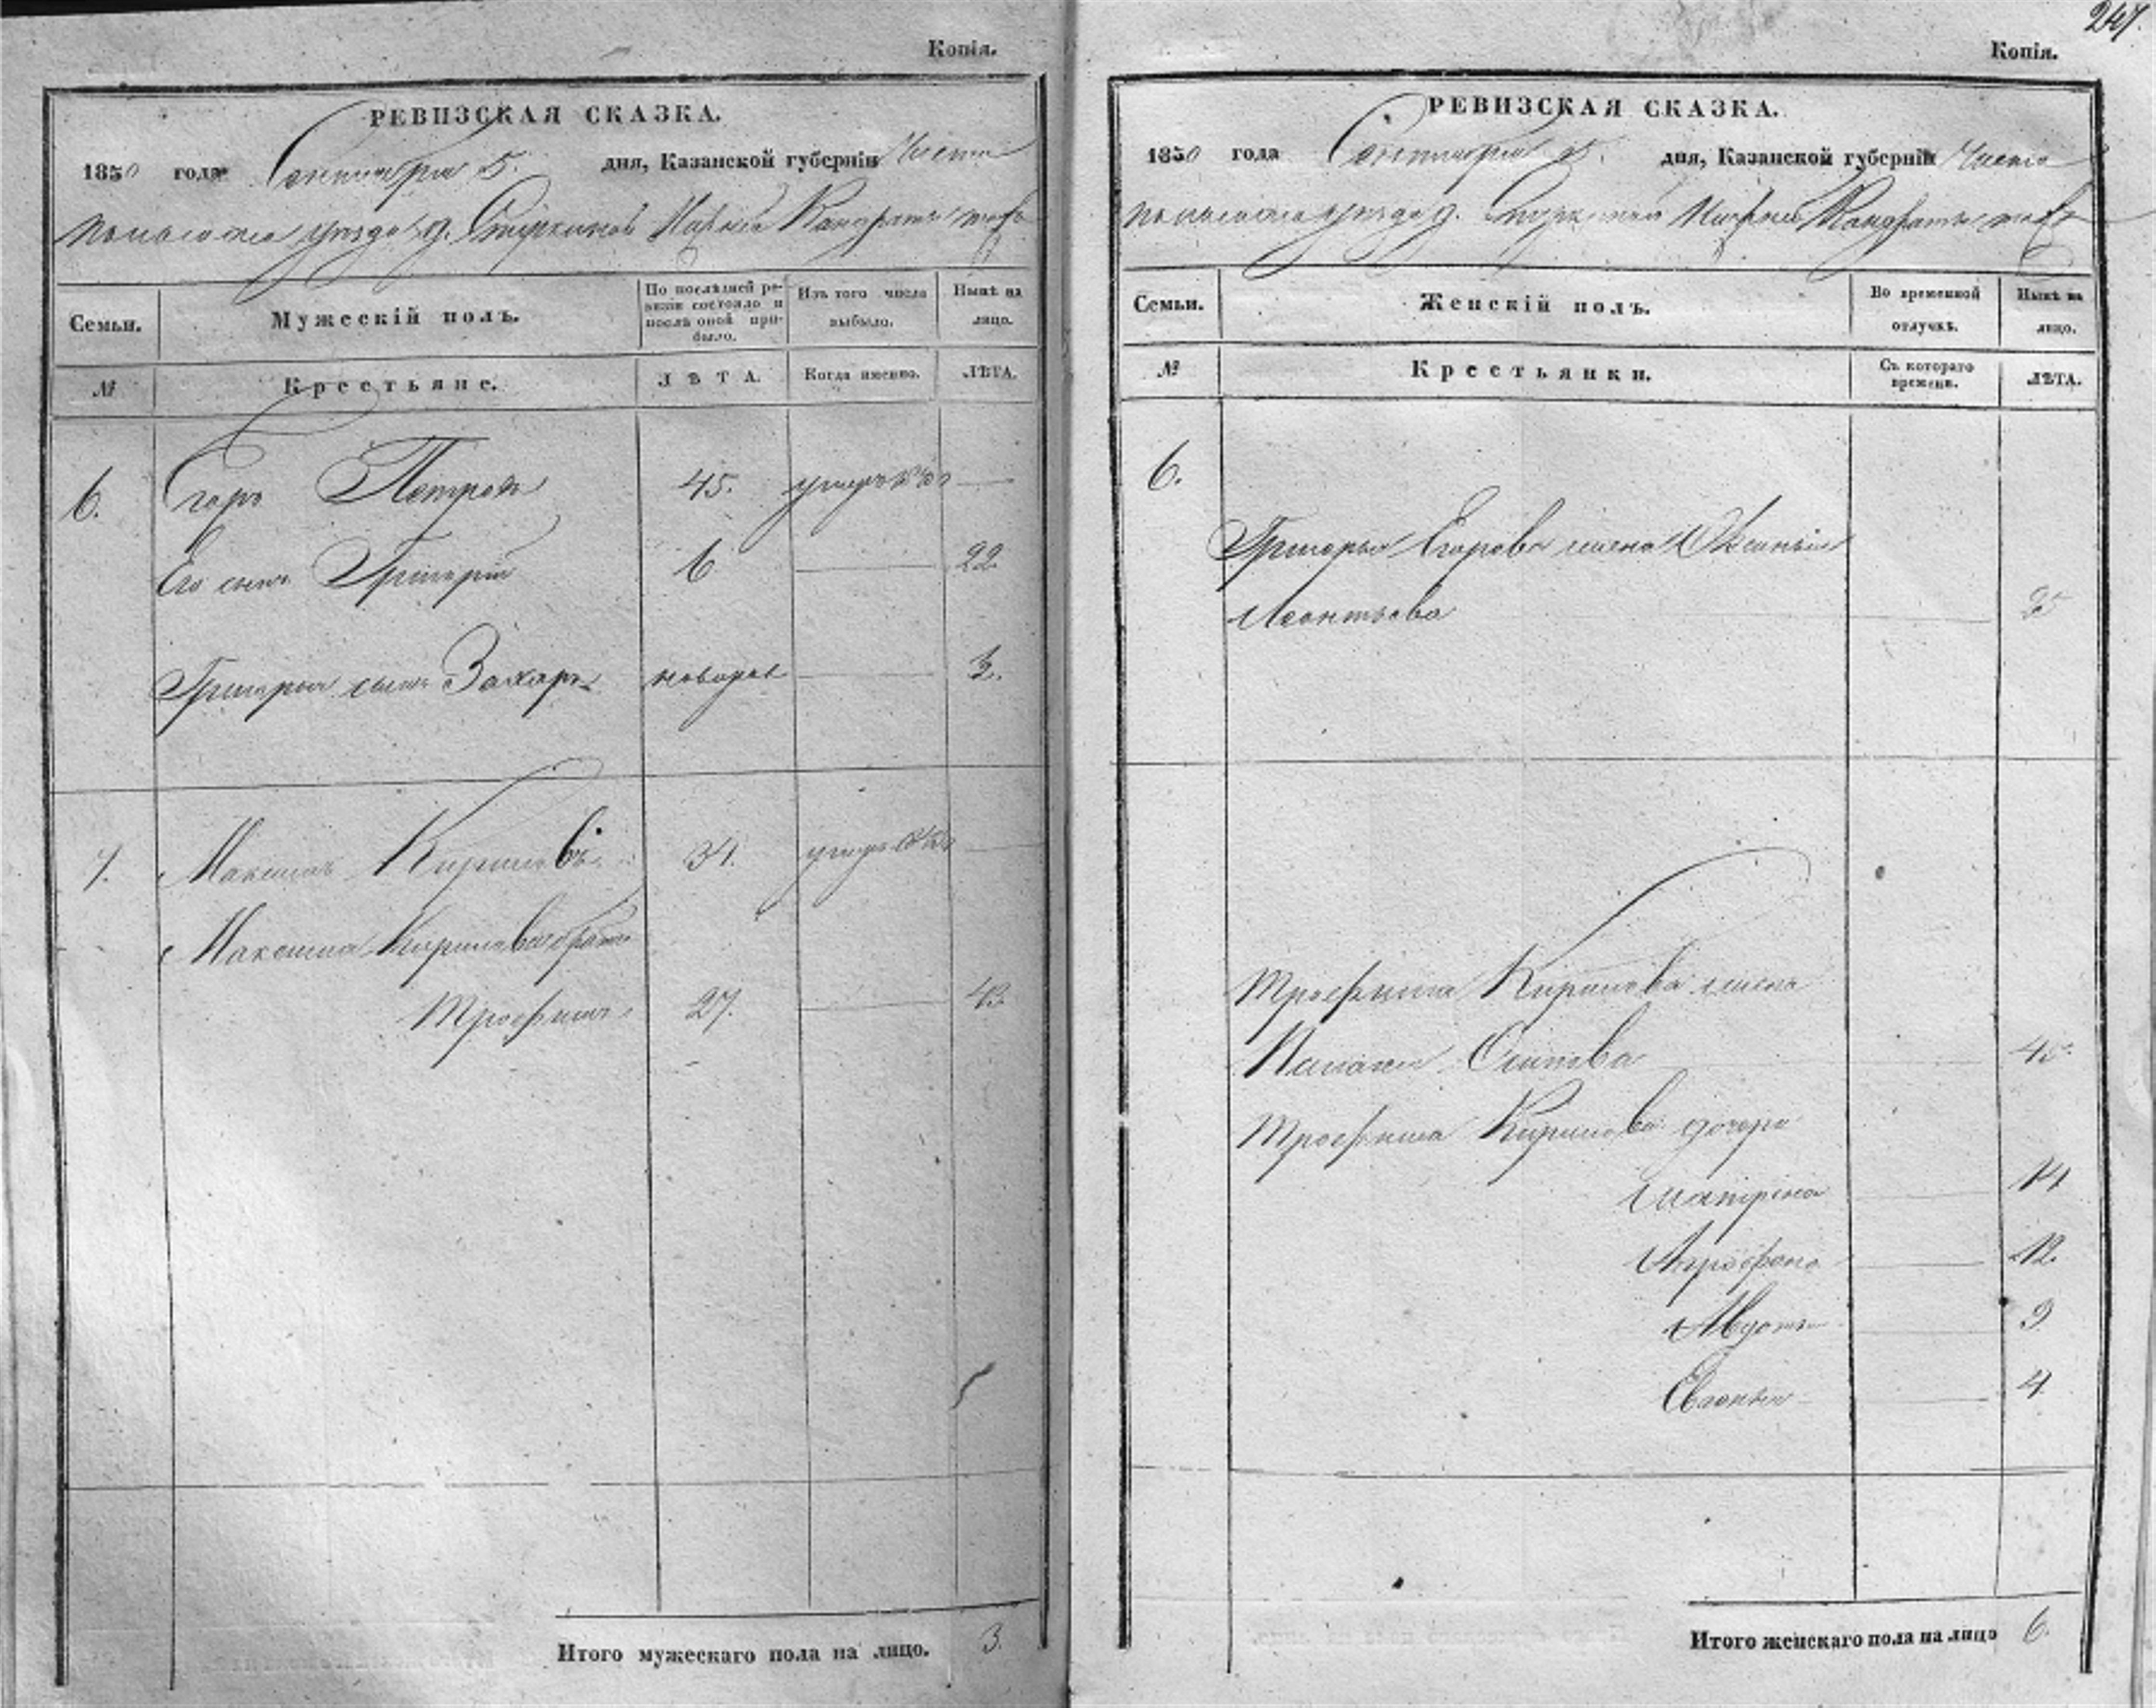 Копія.
РЕВИЗСКАЯ СКАЗКА.
1850 года Сентября 5. дня, Казанской губерніи Чисто
польскаго уезда д.
Семьи. Мужескій полъ. По послѣдней ревизіи состояло и послѣ оной прибыло. Изъ того числа выбыло. Нынѣ на лицо.
№ Крестьяне. ЛѢТА. Когда именно. ЛѢТА.
6. Егоръ Петровъ 45. умеръ
Его сынъ Григорій 6 22.
Григорья сынъ Захаръ новорож
7. Максимъ Кириловъ 34. умеръ
Максима Кирилова братъ
Трофимъ 27. 43.
Итого мужескаго пола на лицо. 3.
247.
Копія.
РЕВИЗСКАЯ СКАЗКА.
1850 года Сентября 5. дня, Казанской губерніи Чисто
польскаго уезда д.
Семьи. Женскій полъ. Во временной отлучкѣ. Нынѣ на лицо.
№ Крестьянки. Съ котораго времени. ЛѢТА.
6.
Григорья Егорова жена
Леонтьева 25
Трофима Кирилова жена
Осипова 45.
Трофима Кирилова дочери
Матрена 14
12.
Авдотья 9
4
Итого женскаго пола на лицо 6.